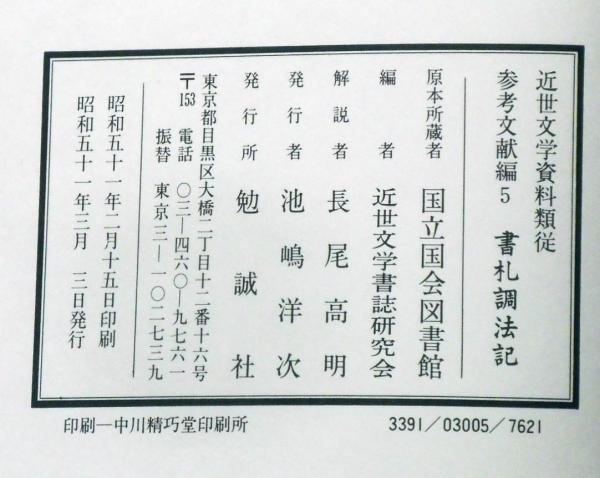 近世文学資料類従
参考文献編5 書札調法記
原本所蔵者 国立国会図書館
編者 近世文学書誌研究会
解説者 長尾高明
発行者 池嶋洋次
発行所 勉誠社
東京都目黒区大橋二丁目十二番十六号
〒153 電話 〇三―四六〇―九七六一
振替 東京三―一〇二七三九
昭和五十一年二月十五日印刷
昭和五十一年三月 三日発行
印刷―中川精巧堂印刷所
3391/03005/7621